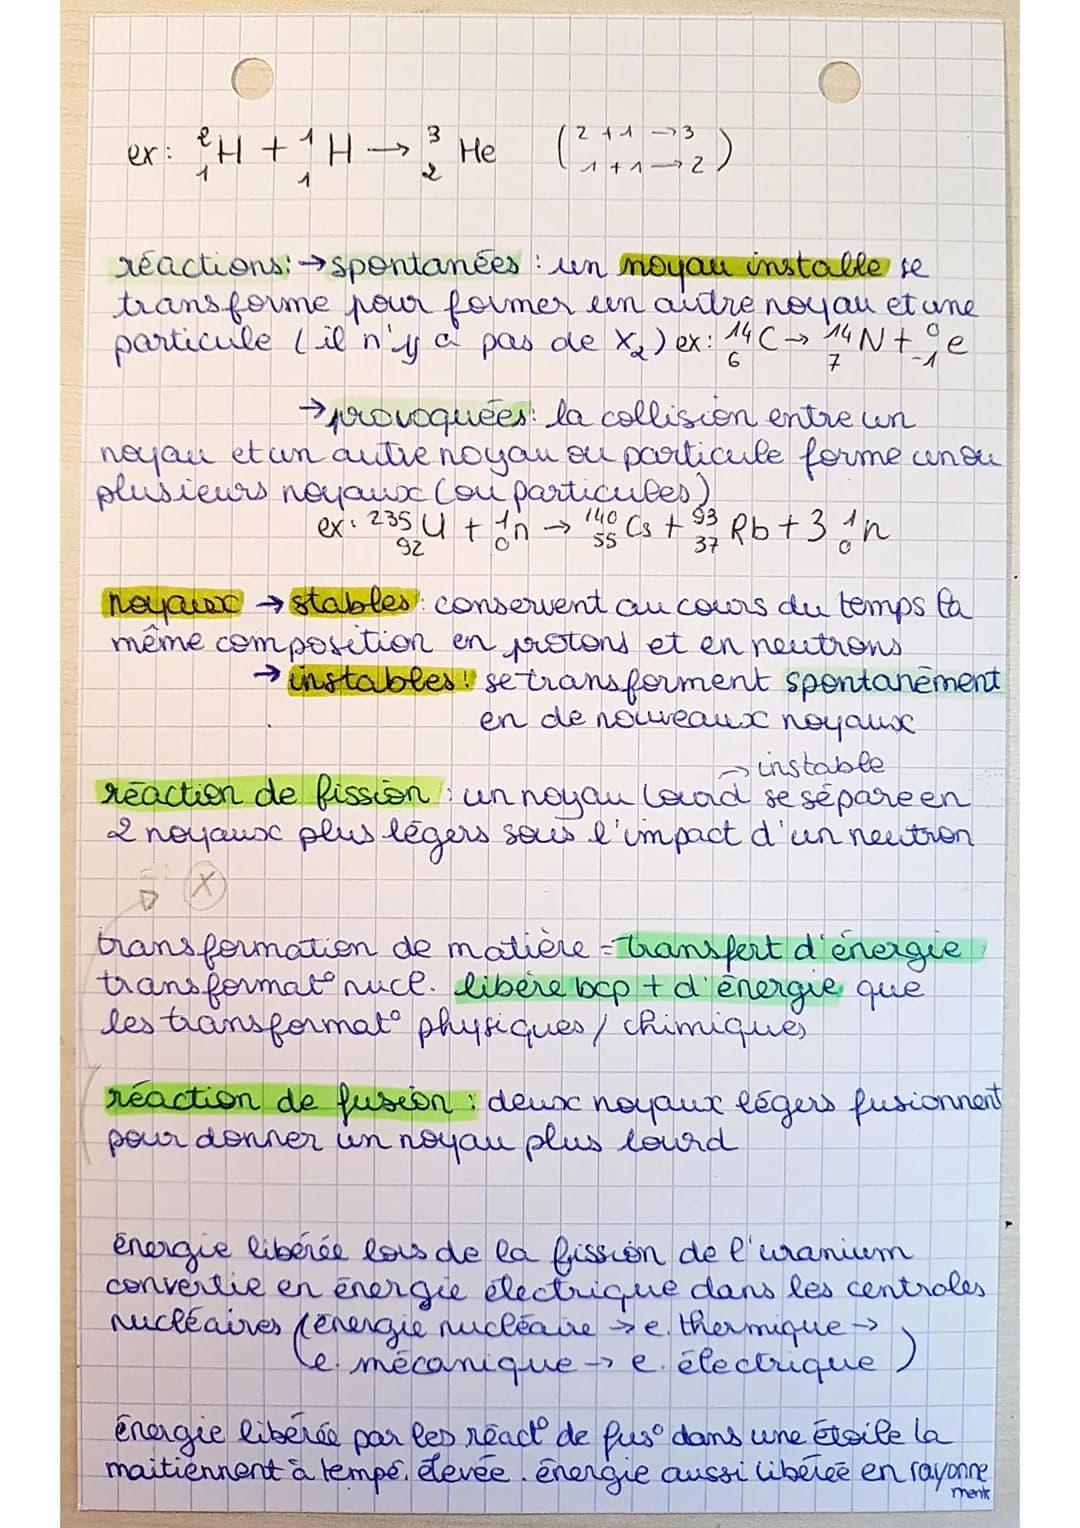 ex: ²₁H + ¹₁H → ³₂He (2+1→3
1+1→2)
réactions: → spontanées : un noyau instable se
transforme pour former un autre noyau et une
particule (il n'y a pas de x₂) ex: ¹⁴₆C → ¹⁴₇N + ⁰₋₁e
→ provoquées: la collision entre un
noyau et un autre noyau ou particule forme un ou
plusieurs noyaux (ou particules)
ex: ²³⁵₉₂U + ¹₀n → ¹⁴⁰₅₅Cs + ⁹³₃₇Rb + 3 ¹₀n
noyaux → stables: conservent au cours du temps la
même composition en protons et en neutrons
→ instables: se transforment spontanément
en de nouveaux noyaux
→ instable
réaction de fission : un noyau lourd se sépare en
2 noyaux plus légers sous l'impact d'un neutron
X
transformation de matière = transfert d'énergie
transformat° nucl. libère bcp + d'énergie que
les transformat° physiques / chimiques
réaction de fusion : deux noyaux légers fusionnent
pour donner un noyau plus lourd
énergie libérée lors de la fission de l'uranium
convertie en énergie électrique dans les centrales
nucléaires (énergie nucléaire → e. thermique →
e. mécanique → e. électrique)
énergie libérée par les réact° de fus° dans une étoile la
maitiennent à tempé. élevée. énergie aussi libérée en rayonne
ments